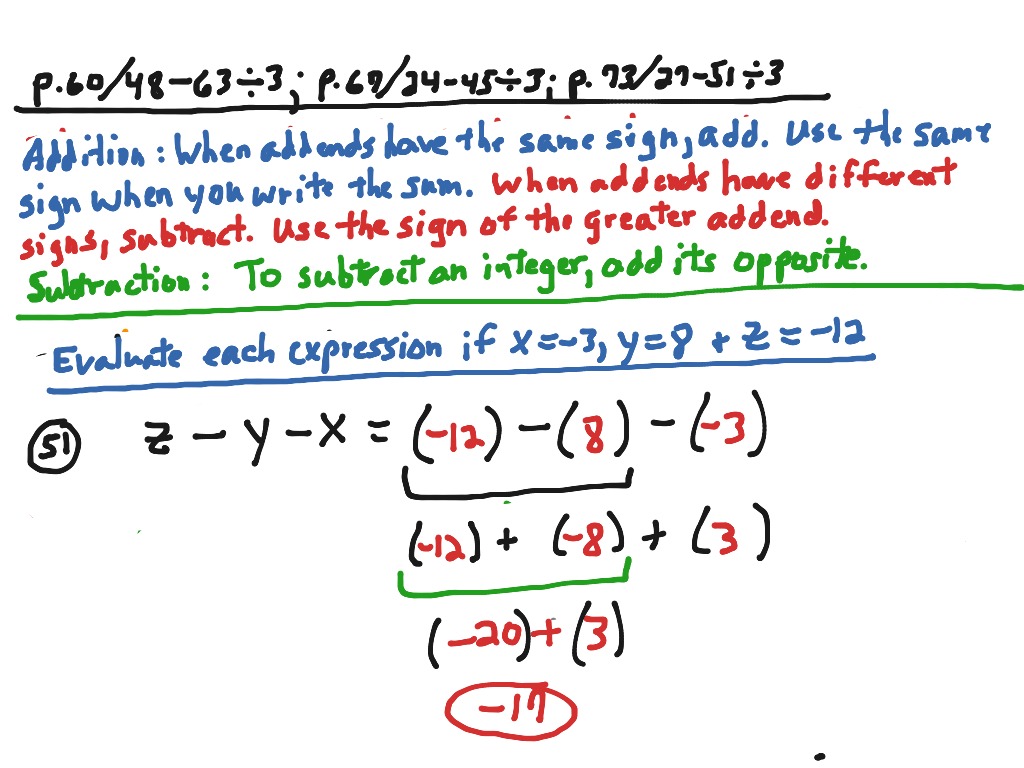 p.60/48-63÷3; p.67/24-45÷3; p.73/27-51÷3
Addition: When addends have the same sign, add. Use the same
sign when you write the sum. When addends have different
signs, subtract. Use the sign of the greater addend.
Subtraction: To subtract an integer, add its opposite.
Evaluate each expression if x=-3, y=8 + z=-12
51 z - y - x = (-12) - (8) - (-3)
(-12) + (-8) + (3)
(-20) + (3)
-17